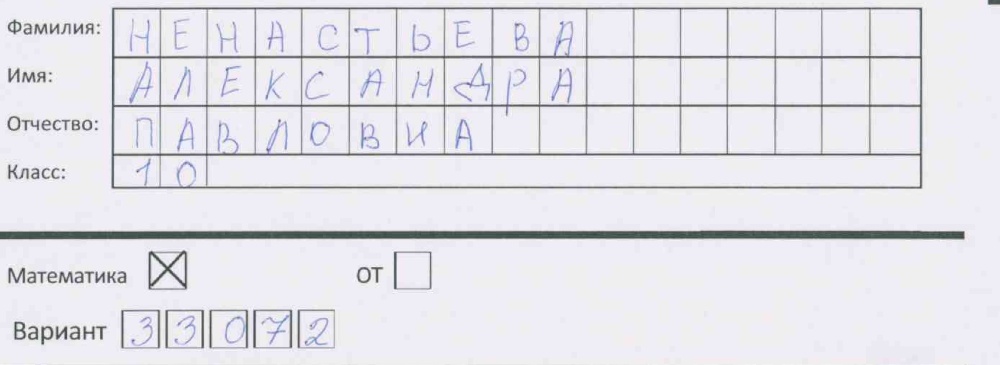 Фамилия: НЕНАСТЬЕВА
Имя: АЛЕКСАНДРА
Отчество: ПАВЛОВНА
Класс: 10
Математика ☒ ОТ ☐
Вариант 33072